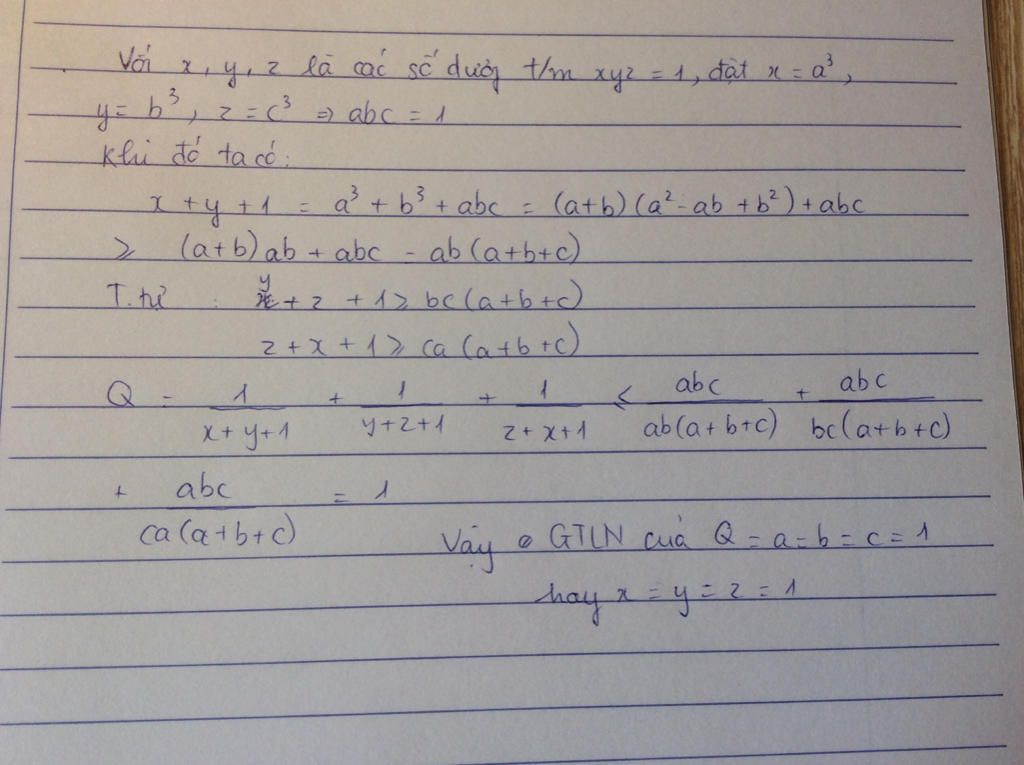 Với x, y, z là các số dương t/m xyz = 1, đặt x = a³,
y = b³, z = c³ ⇒ abc = 1
Khi đó ta có:
x + y + 1 = a³ + b³ + abc = (a+b)(a² - ab + b²) + abc
≥ (a+b)ab + abc = ab(a+b+c)
T.tự : y + z + 1 ≥ bc(a+b+c)
z + x + 1 ≥ ca(a+b+c)
Q = 1/(x+y+1) + 1/(y+z+1) + 1/(z+x+1) ≤ abc/(ab(a+b+c)) + abc/(bc(a+b+c))
+ abc/(ca(a+b+c)) = 1
Vậy GTLN của Q = a = b = c = 1
hay x = y = z = 1